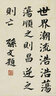 世界潮流浩浩
蕩蕩順之則昌逆之
則亡
孫文題